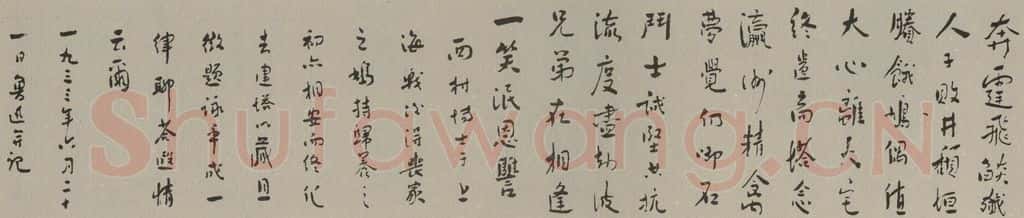 奔霆飛焰殲
人子敗井頹垣
賸餓鳩偶值
大心離火宅
終遺高塔念
瀛洲精禽
夢覺仍銜石
鬥士誠堅共抗
流度盡劫波
兄弟在相逢
一笑泯恩讐
西村博士于上
海戰後得喪家
之鳩持歸養之
初亦相安而終化
去建塔以藏且
徵題詠率成一
律聊答遐情
云爾
一九三三年六月二十
一日魯迅并記
Shufawang.CN